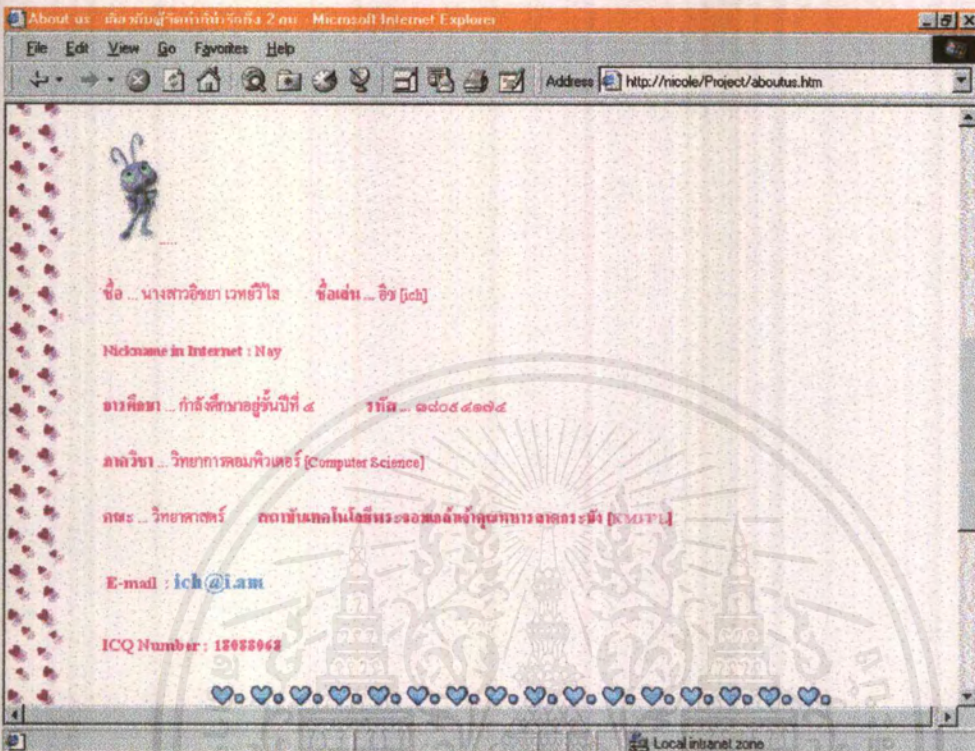 About us : เกี่ยวกับผู้จัดทำที่น่ารักทั้ง 2 คน - Microsoft Internet Explorer
File Edit View Go Favorites Help
Address http://nicole/Project/aboutus.htm
ชื่อ ... นางสาวอิชยา เวทย์วิไล ชื่อเล่น ... อิช [ich]
Nickname in Internet : Nay
การศึกษา ... กำลังศึกษาอยู่ชั้นปีที่ ๔ รหัส ... ๓๘๐๕๔๑๗๔
ภาควิชา ... วิทยาการคอมพิวเตอร์ [Computer Science]
คณะ ... วิทยาศาสตร์ สถาบันเทคโนโลยีพระจอมเกล้าเจ้าคุณทหารลาดกระบัง [KMITL]
E-mail : ich@i.am
ICQ Number : 18088068
Local intranet zone